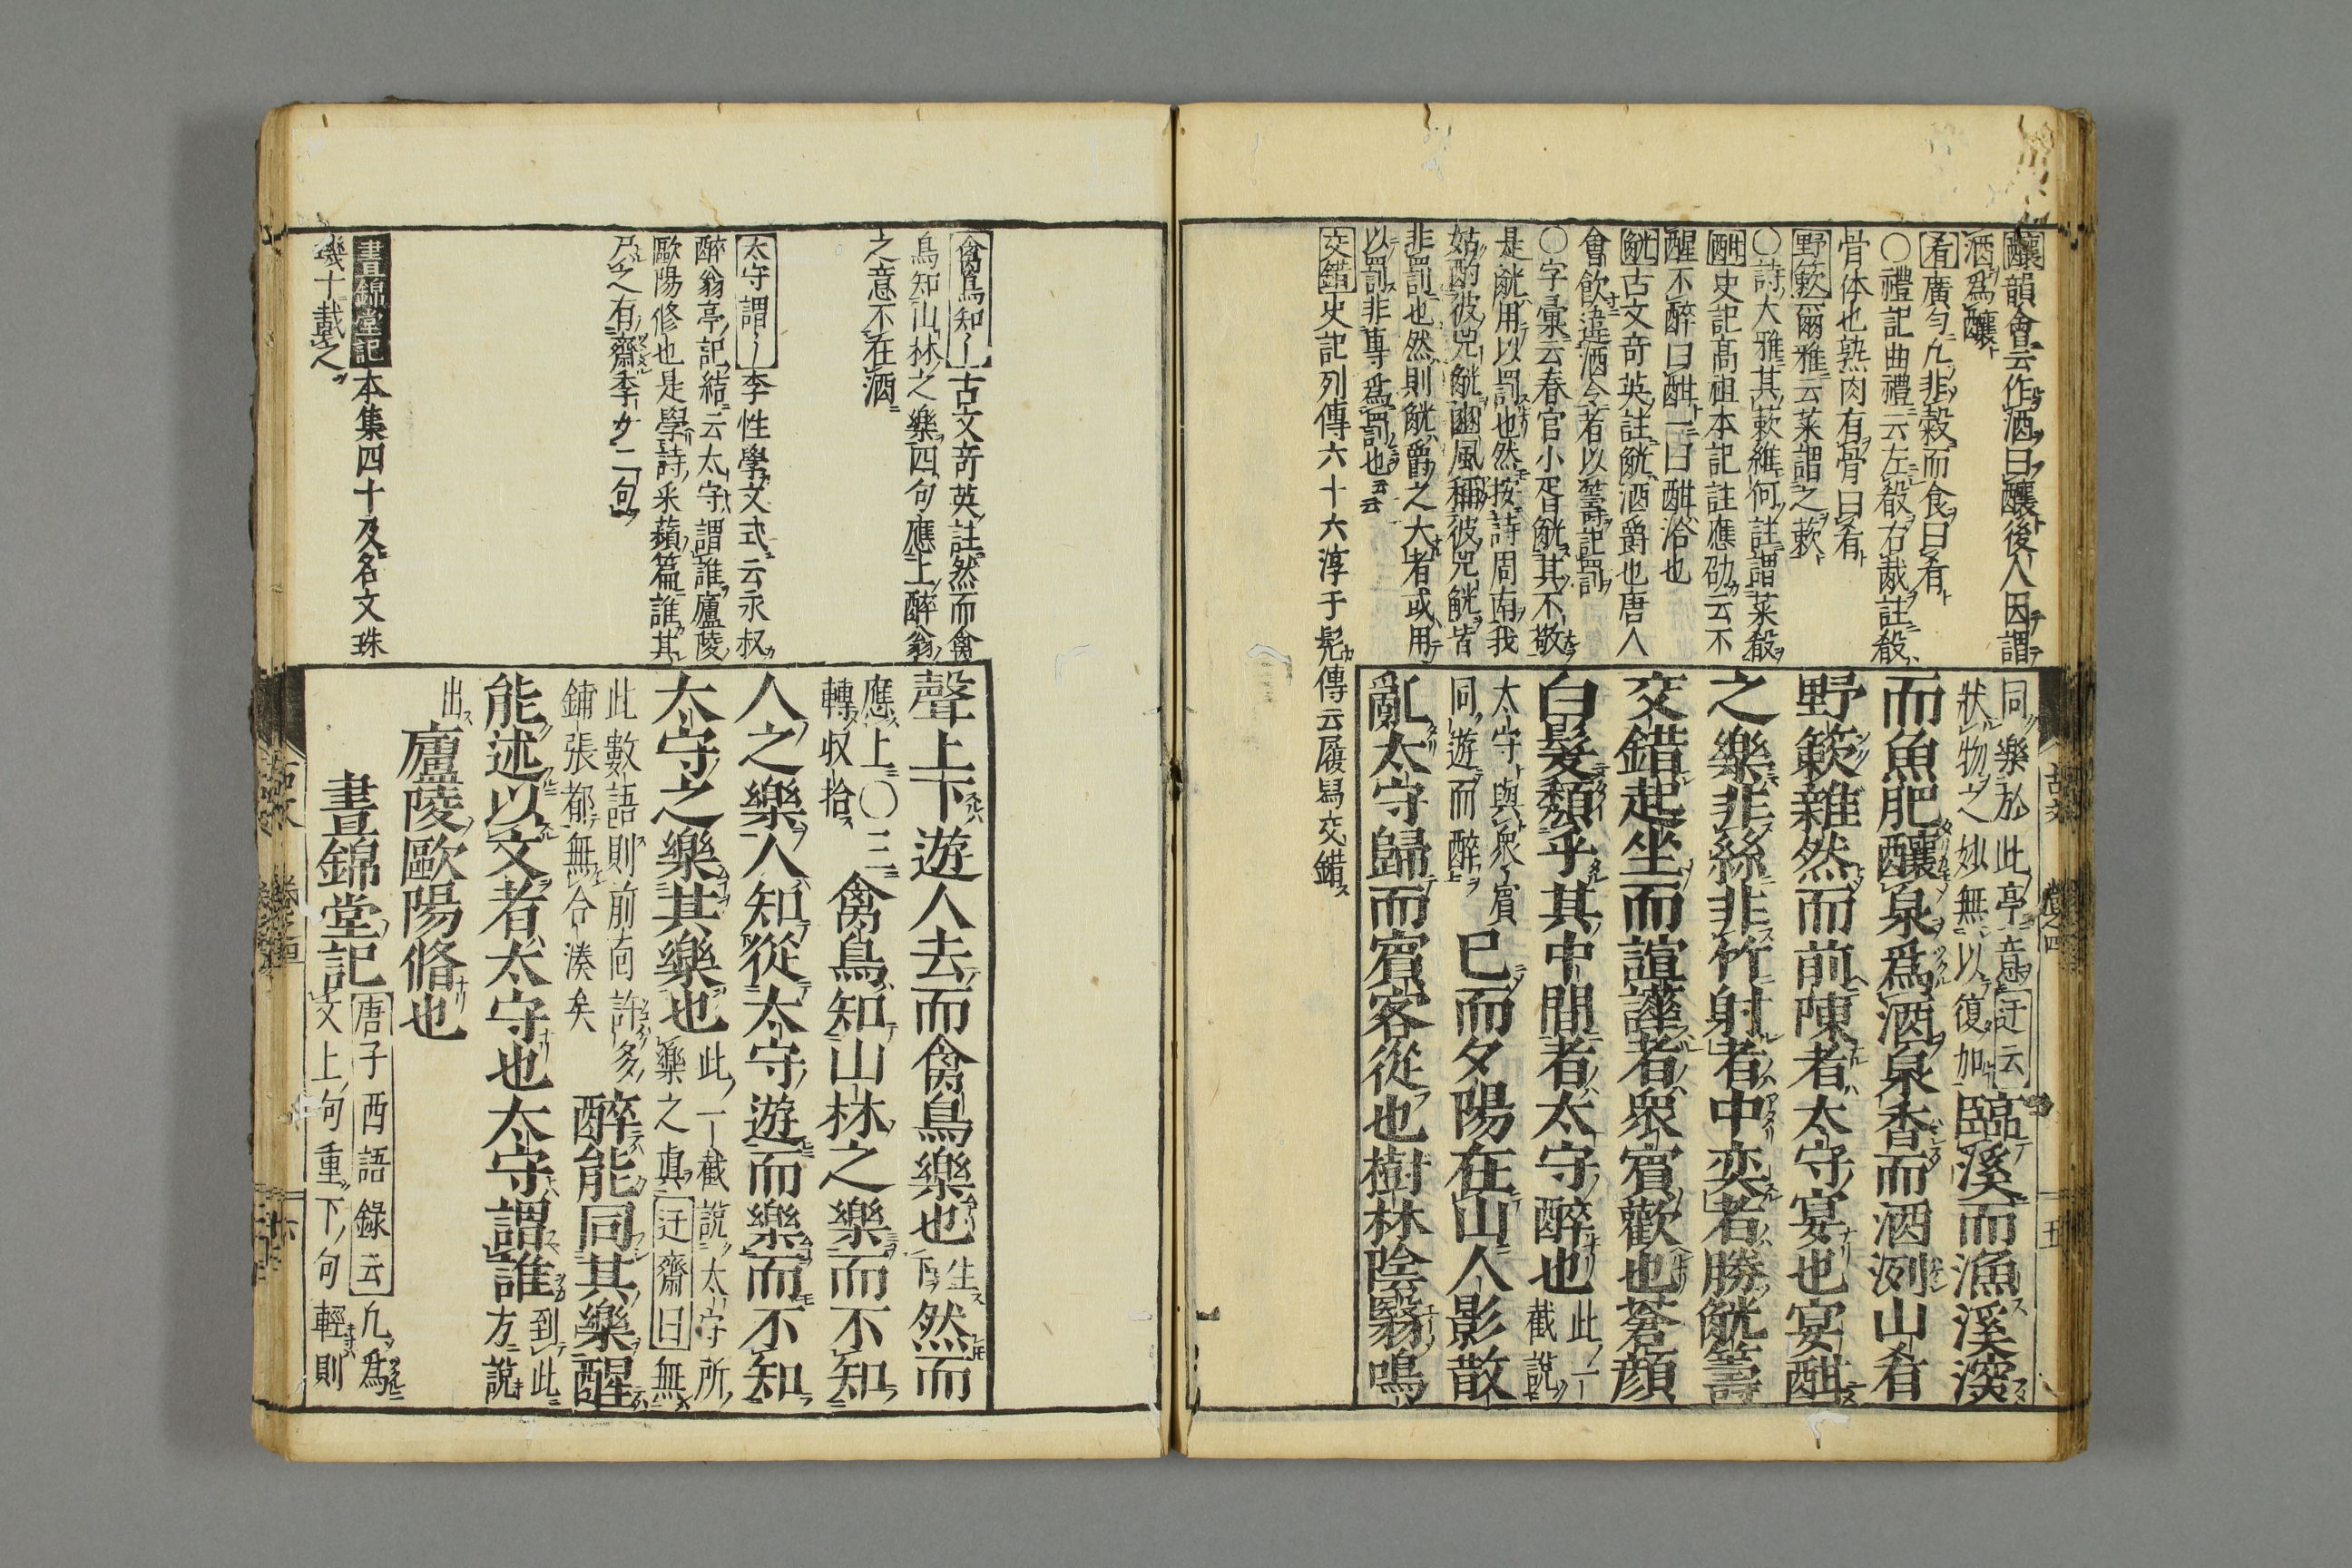 釀韻會云作酒曰釀後人因謂
酒爲釀
肴廣勻凢非穀而食曰肴
〇禮記曲禮云左殽右胾註殽
骨体也熟肉有骨曰肴
野蔌爾雅云菜謂之蔌
〇詩大雅其蔌維何註謂菜殽
酣史記髙祖本記註應劭云不
醒不醉曰酣一曰酣洽也
觥古文奇英註觥酒爵也唐人
會飲違酒令者以籌記罰
〇字彙云春官小胥觥其不敬
是觥用以罰也然按詩周南我
姑酌彼兕觥豳風稱彼兕觥皆
非罰也然則觥爵之大者或用
以罰非專爲罰也云云
交錯史記列傳六十六淳于髡傳云履舄交錯
同樂於此亭意迂云
狀物之妙無以復加臨溪而漁溪深
而魚肥釀泉爲酒泉香而酒洌山肴
野蔌雜然而前陳者太守宴也宴酣
之樂非絲非竹射者中奕者勝觥籌
交錯起坐而諠譁者衆賓歡也蒼顔
白髮頹乎其中間者太守醉也此一
截說
太守與衆賓
同遊而醉已而夕陽在山人影散
亂太守歸而賓客從也樹林陰翳鳴
古文 卷之四 五
禽鳥知〻古文奇英註然而禽
鳥知山林之樂四句應上醉翁
之意不在酒
太守謂〻李性學文式云永叔
醉翁亭記結云太守謂誰廬陵
歐陽修也是學詩采蘋篇誰其
尸之有齋季女二句
晝錦堂記本集四十及名文珠
璣十載之
聲上下遊人去而禽鳥樂也生下
然而
應上〇三
轉収拾禽鳥知山林之樂而不知
人之樂人知從太守遊而樂而不知
太守之樂其樂也此一截說太守所
樂之真迂齋曰無
此數語則前面許多
鋪張都無合湊矣醉能同其樂醒
能述以文者太守也太守謂誰到此
方說
出廬陵歐陽脩也
晝錦堂記唐子西語錄云凢爲
文上句重下句輕則